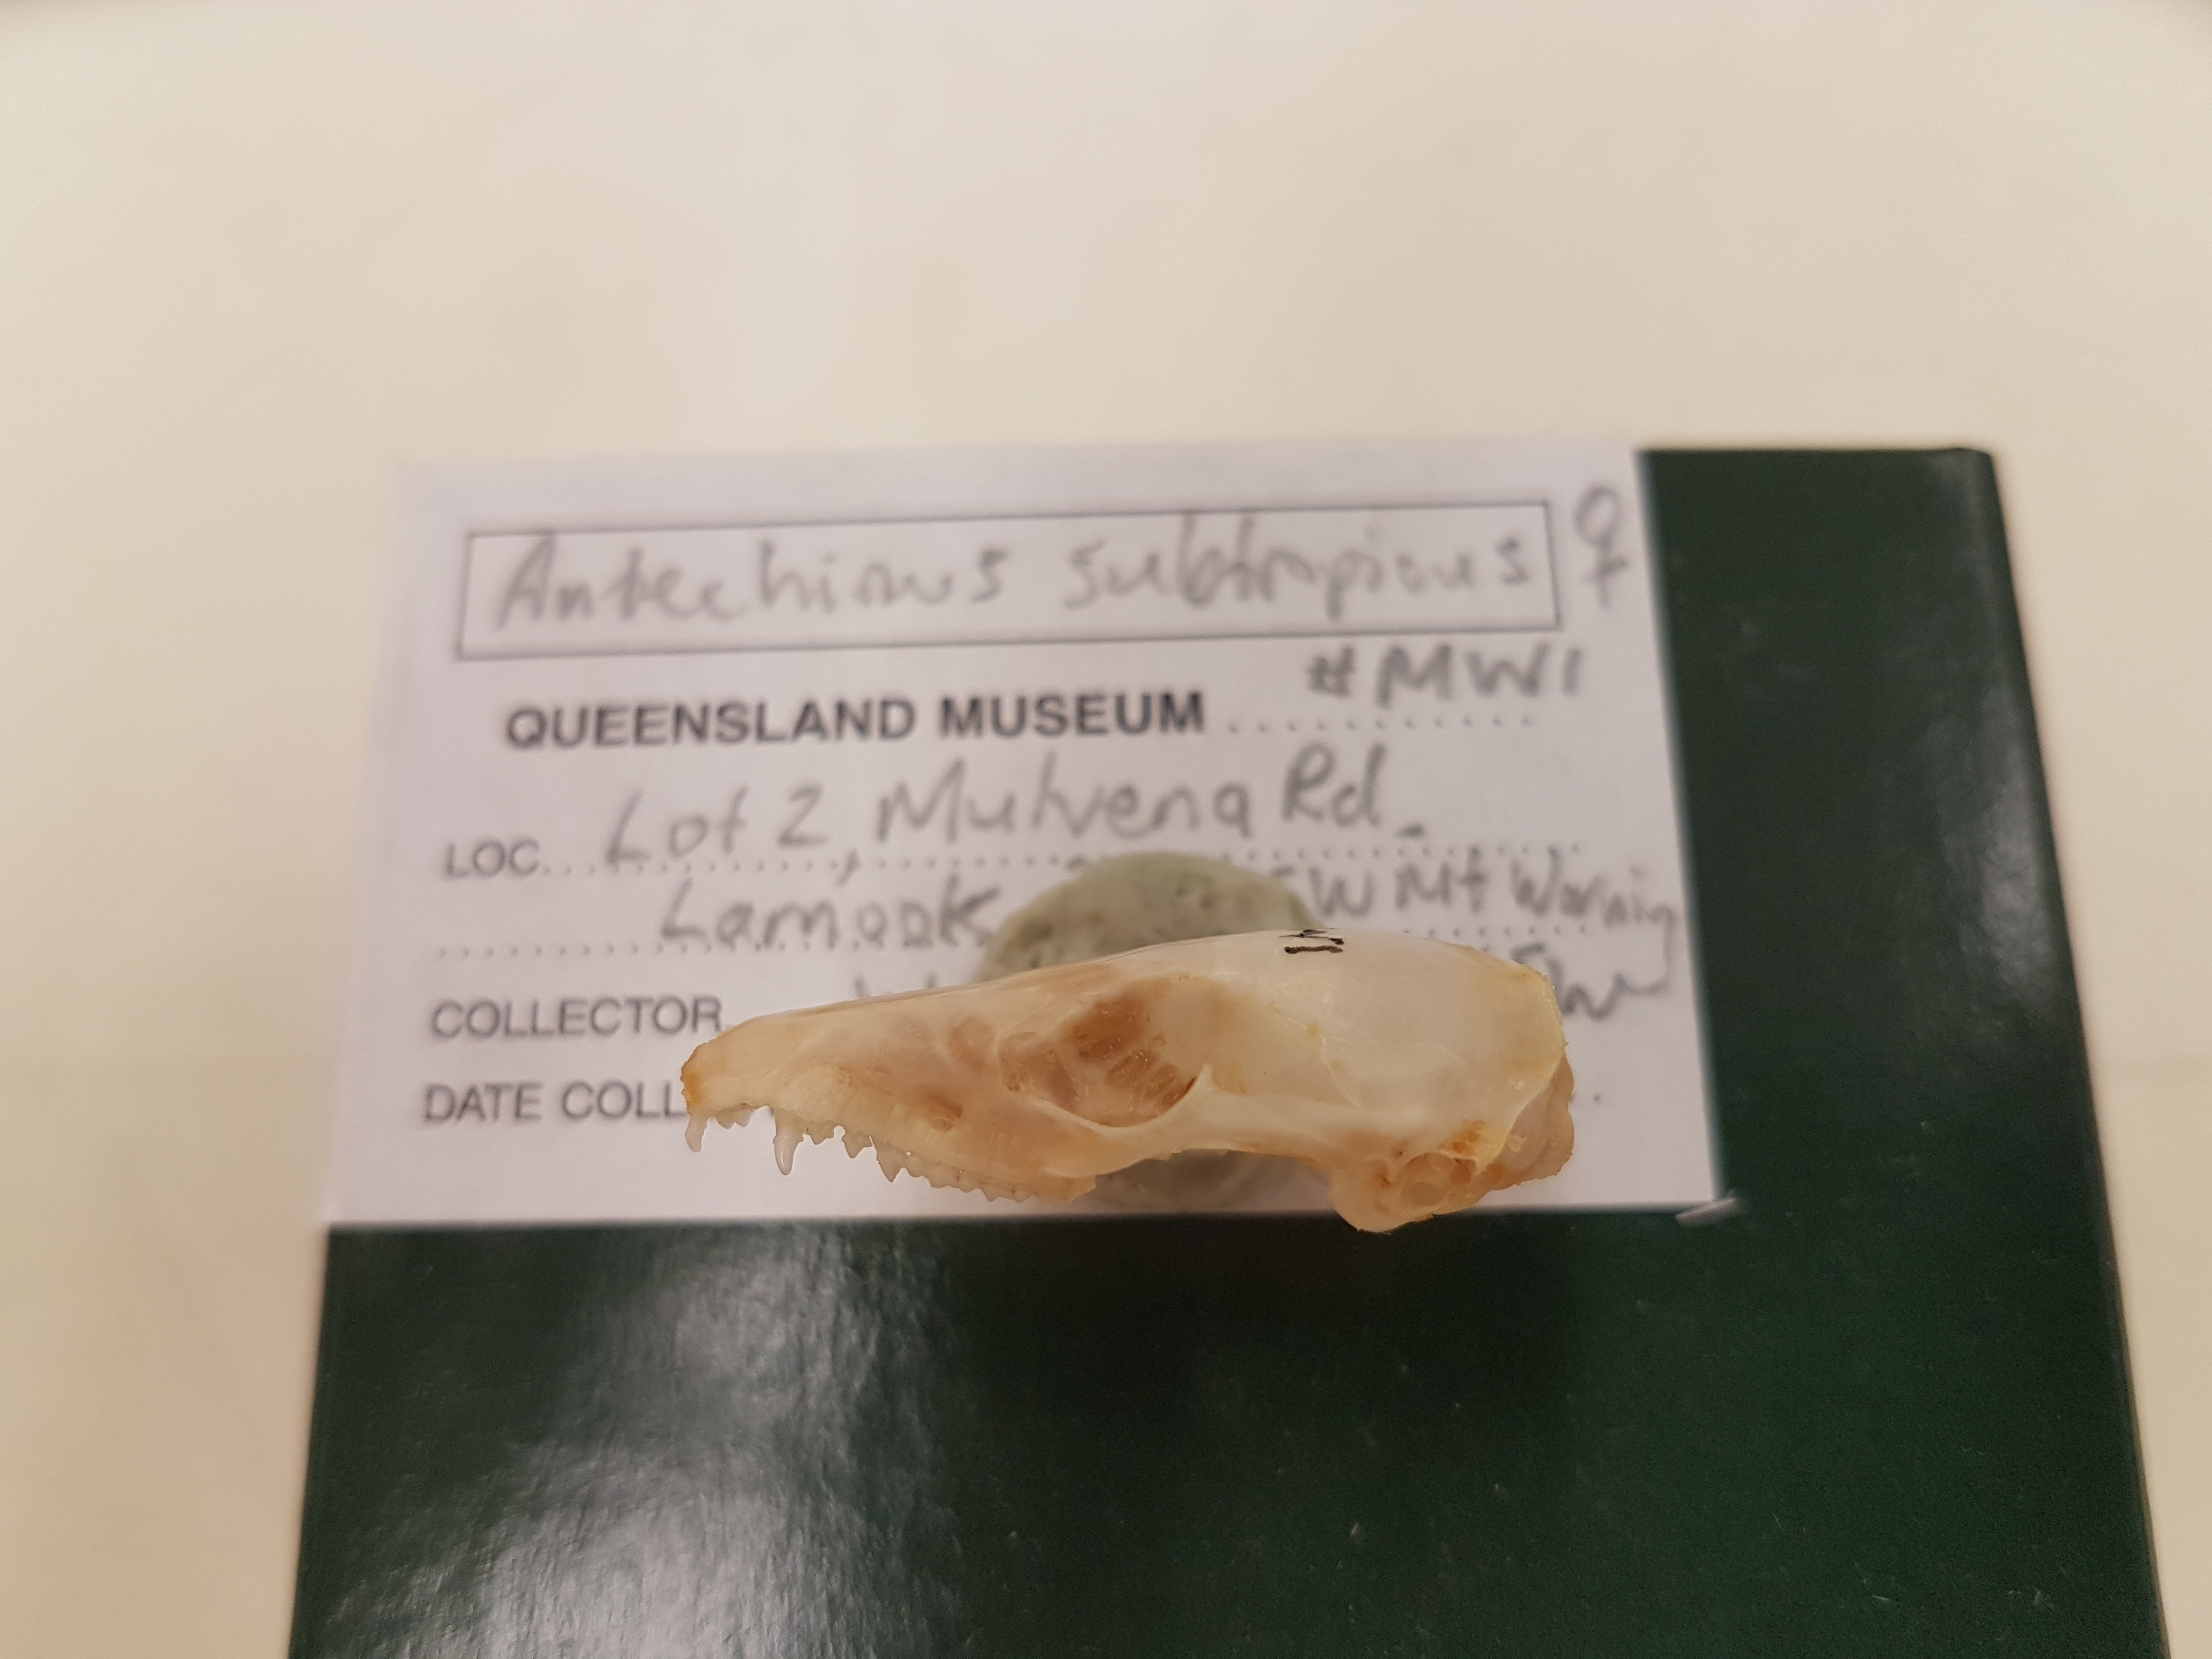 Antechinus subtropicus ♀
QUEENSLAND MUSEUM ........ #MW1
LOC. Lot 2, Mulvena Rd.
Larnook Mt Warning
COLLECTOR
DATE COLL